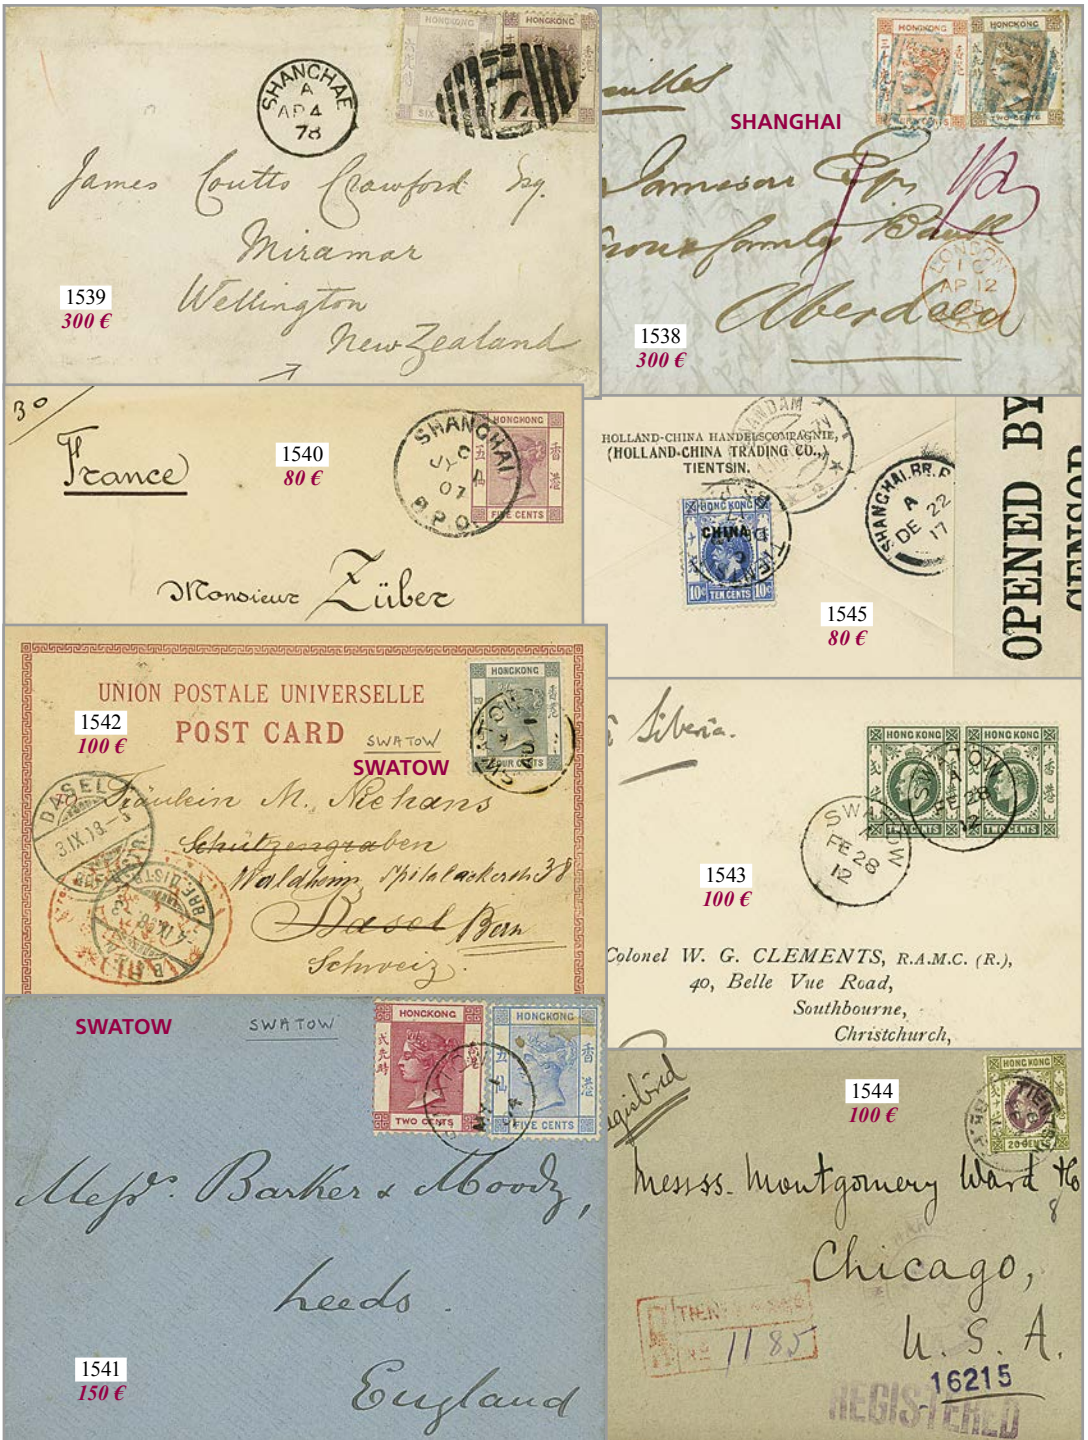 HONGKONG
HONGKONG
SHANGHAE
A
AP 4
78
James Coutts Crawford Esq.
Miramar
Wellington
New Zealand
1539
300 €
HONGKONG
HONGKONG
TWO CENTS
SHANGHAI
Jameson Esqr
Bank
Aberdeen
LONDON
AP 12
1538
300 €
30
France
1540
80 €
HONGKONG
五仙
香港
FIVE CENTS
SHANGHAI
07
B.P.O.
Monsieur Züber
HOLLAND-CHINA HANDELSCOMPAGNIE,
(HOLLAND-CHINA TRADING CO.,)
TIENTSIN.
HONG KONG
CHINA
10c TEN CENTS 10c
SHANGHAI.BR.P.
A
DE 22
17
OPENED BY
CENSOR
1545
80 €
UNION POSTALE UNIVERSELLE
POST CARD
SWATOW
SWATOW
1542
100 €
HONGKONG
FOUR CENTS
SWATOW
AU 1
Fräulein M. Niehans
Schützengraben
Waldheim, Spitalackerstr. 38
Basel Bern
Schweiz.
BASEL
Siberia.
HONG KONG
HONG KONG
TWO CENTS
TWO CENTS
SWATOW
A
FE 28
12
SWATOW
FE 28
12
1543
100 €
Colonel W. G. CLEMENTS, R.A.M.C. (R.),
40, Belle Vue Road,
Southbourne,
Christchurch,
SWATOW
SWATOW
HONGKONG
TWO CENTS
HONGKONG
五仙
香港
FIVE CENTS
Messrs. Barker & Moody,
Leeds.
England
1541
150 €
Registered
1544
100 €
HONG KONG
20 CENTS
Messss. Montgomery Ward & Co
8
Chicago,
U. S. A.
1185
16215
REGISTERED